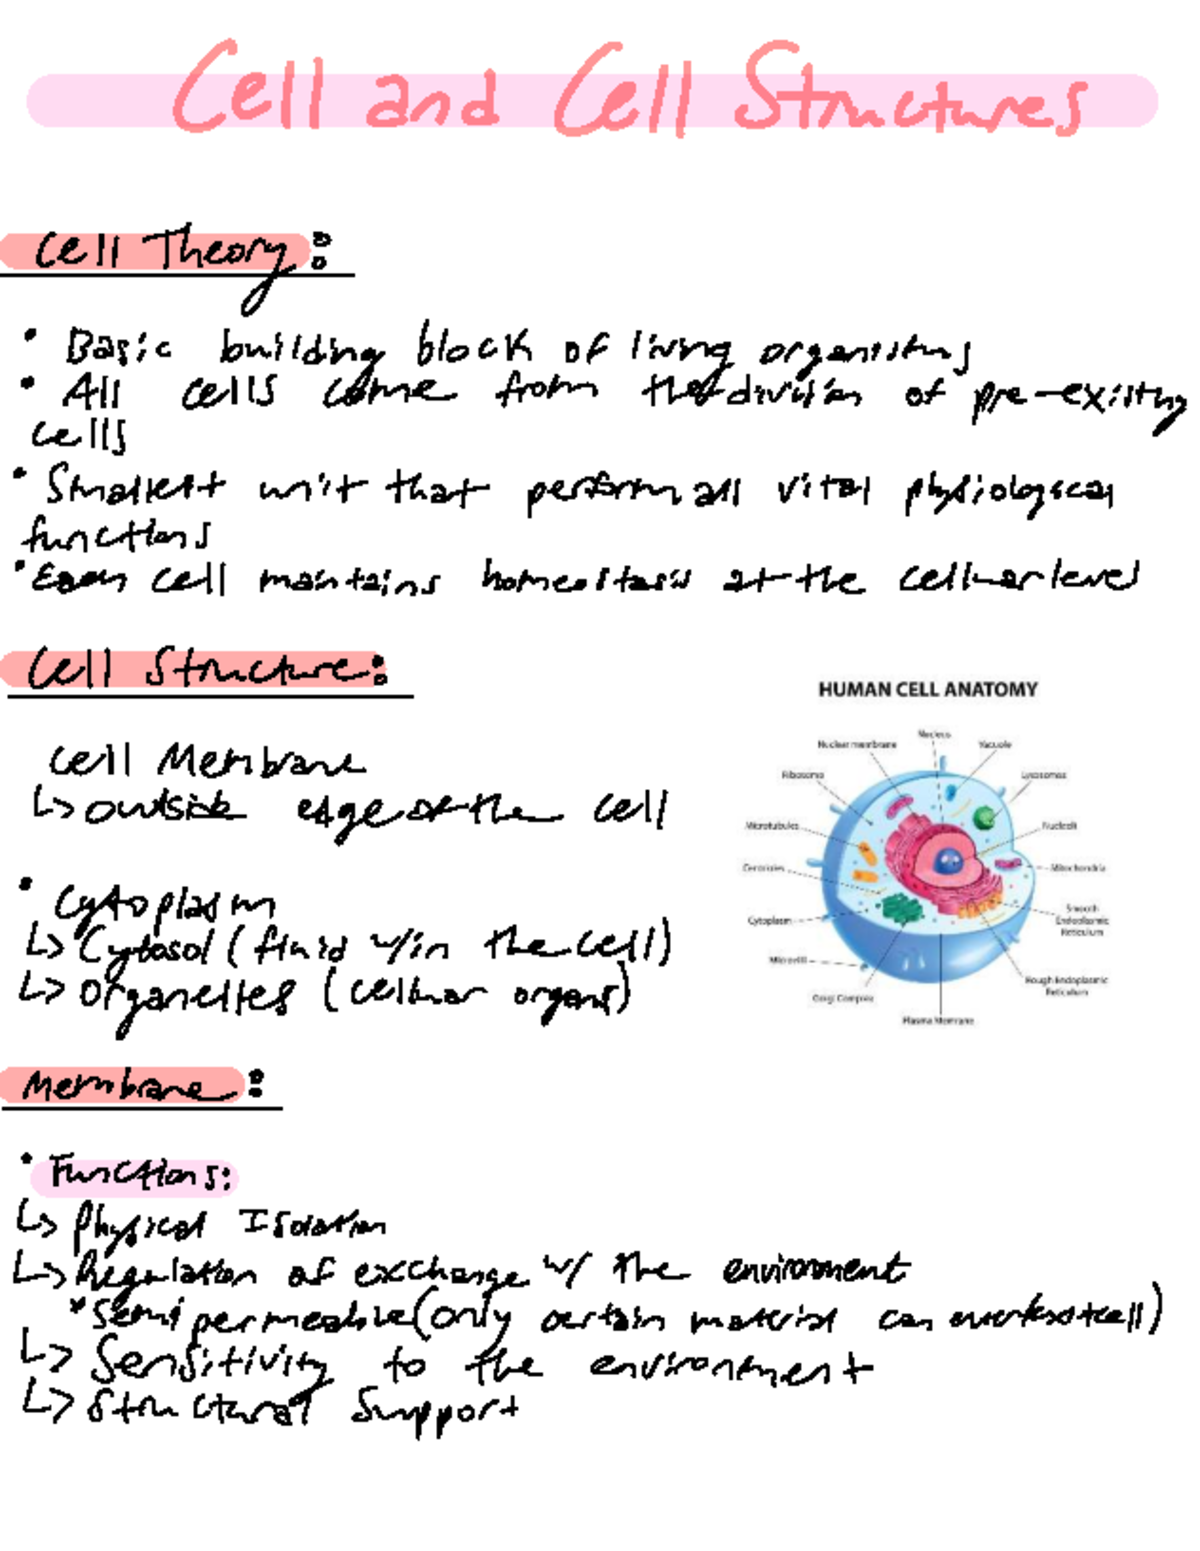 Cell and Cell Structures
Cell Theory:
• Basic building block of living organisms
• All cells come from the division of pre-existing
cells
• Smallest unit that perform all vital physiological
functions
• Each cell maintains homeostasis at the cellular level
Cell Structure:
HUMAN CELL ANATOMY
Cell Membrane
↳ outside edge of the cell
Nucleus
Nuclear membrane
Vacuole
Ribosome
Lysosomes
Microtubules
Nucleoli
Centrioles
Mitochondria
Cytoplasm
Smooth
Endoplasmic
Reticulum
Microvilli
Rough Endoplasmic
Reticulum
Golgi Complex
Plasma Memrane
• Cytoplasm
↳ Cytosol (fluid w/in the cell)
↳ Organelles (cellular organs)
Membrane:
• Functions:
↳ Physical Isolation
↳ Regulation of exchange w/ the environment
* Semi permeable (only certain material can cell)
↳ Sensitivity to the environment
↳ Structural Support